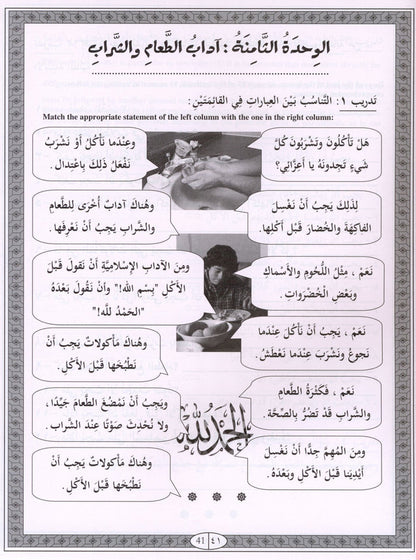 الوِحدَةُ الثَّامِنَةُ : آدابُ الطَّعامِ والشَّرابِ
تَدريب ١ : التَّناسُبُ بَيْنَ العِباراتِ فِي القائِمَتَيْنِ:
Match the appropriate statement of the left column with the one in the right column:
هَلْ تَأكُلُونَ وتَشْرَبُونَ كُلَّ
شَيْءٍ تَجِدونَهُ يا أعِزّائِي؟
وعِنْدَما نَأكُلُ أوْ نَشْرَبُ
نَفْعَلُ ذَلِكَ بِاعْتِدال.
لِذلِكَ يَجِبُ أنْ نَغْسِلَ
الفاكِهَةَ والخُضارَ قَبْلَ أكْلِها.
وهُناكَ آدابٌ أُخْرَى لِلطَّعامِ
والشَّرابِ يَجِبُ أنْ نَعْرِفَها.
نَعَمْ ، مِثْلُ اللُّحُومِ والأسْماكِ
وبَعْضِ الخُضْرَواتِ.
ومِنَ الآدابِ الإسْلامِيَّةِ أنْ نَقولَ قَبْلَ
الأكْلِ "بِسْمِ الله!" وأنْ نَقُولَ بَعْدَهُ
"الحَمْدُ لله!"
نَعَمْ ، يَجِبُ أنْ نَأكُلَ عِنْدَما
نَجوعُ ونَشْرَبَ عِنْدَما نَعْطَشُ.
وهُناكَ مَأكولاتٌ يَجِبُ أنْ
نَطْبُخَها قَبْلَ الأكْلِ.
نَعَمْ ، فَكَثْرَةُ الطَّعامِ
والشَّرابِ قَدْ تَضُرُّ بِالصِّحَّة.
ويَجِبُ أنْ نَمْضُغَ الطَّعامَ جَيِّدًا ،
ولا نُحْدِثَ صَوْتًا عِنْدَ الشَّراب.
الحمد لله
ومِنَ المُهِمِّ جِدًّا أنْ نَغْسِلَ
أيْدِيَنا قَبْلَ الأكْلِ وبَعْدَهُ.
وهُناكَ مَأكولاتٌ يَجِبُ أنْ
نَطْبُخَها قَبْلَ الأكْلِ.
41 ٤١